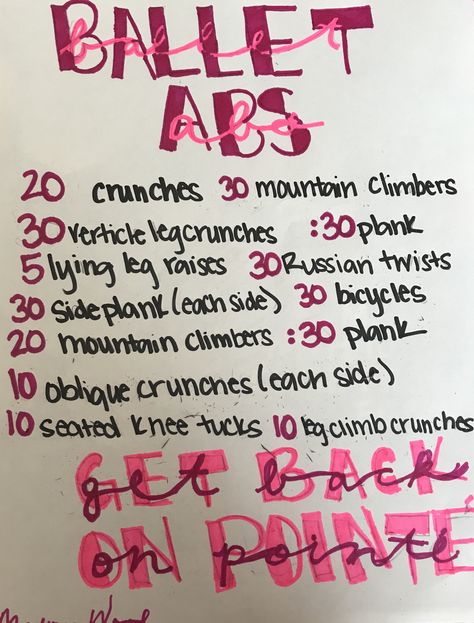 BALLET
ballet
ABS
abs
20 crunches 30 mountain climbers
30 verticle leg crunches :30 plank
5 lying leg raises 30 Russian twists
30 side plank (each side) 30 bicycles
20 mountain climbers :30 plank
10 oblique crunches (each side)
10 seated knee tucks 10 leg climb crunches
GET BACK
get back
ON POINTE
on pointé